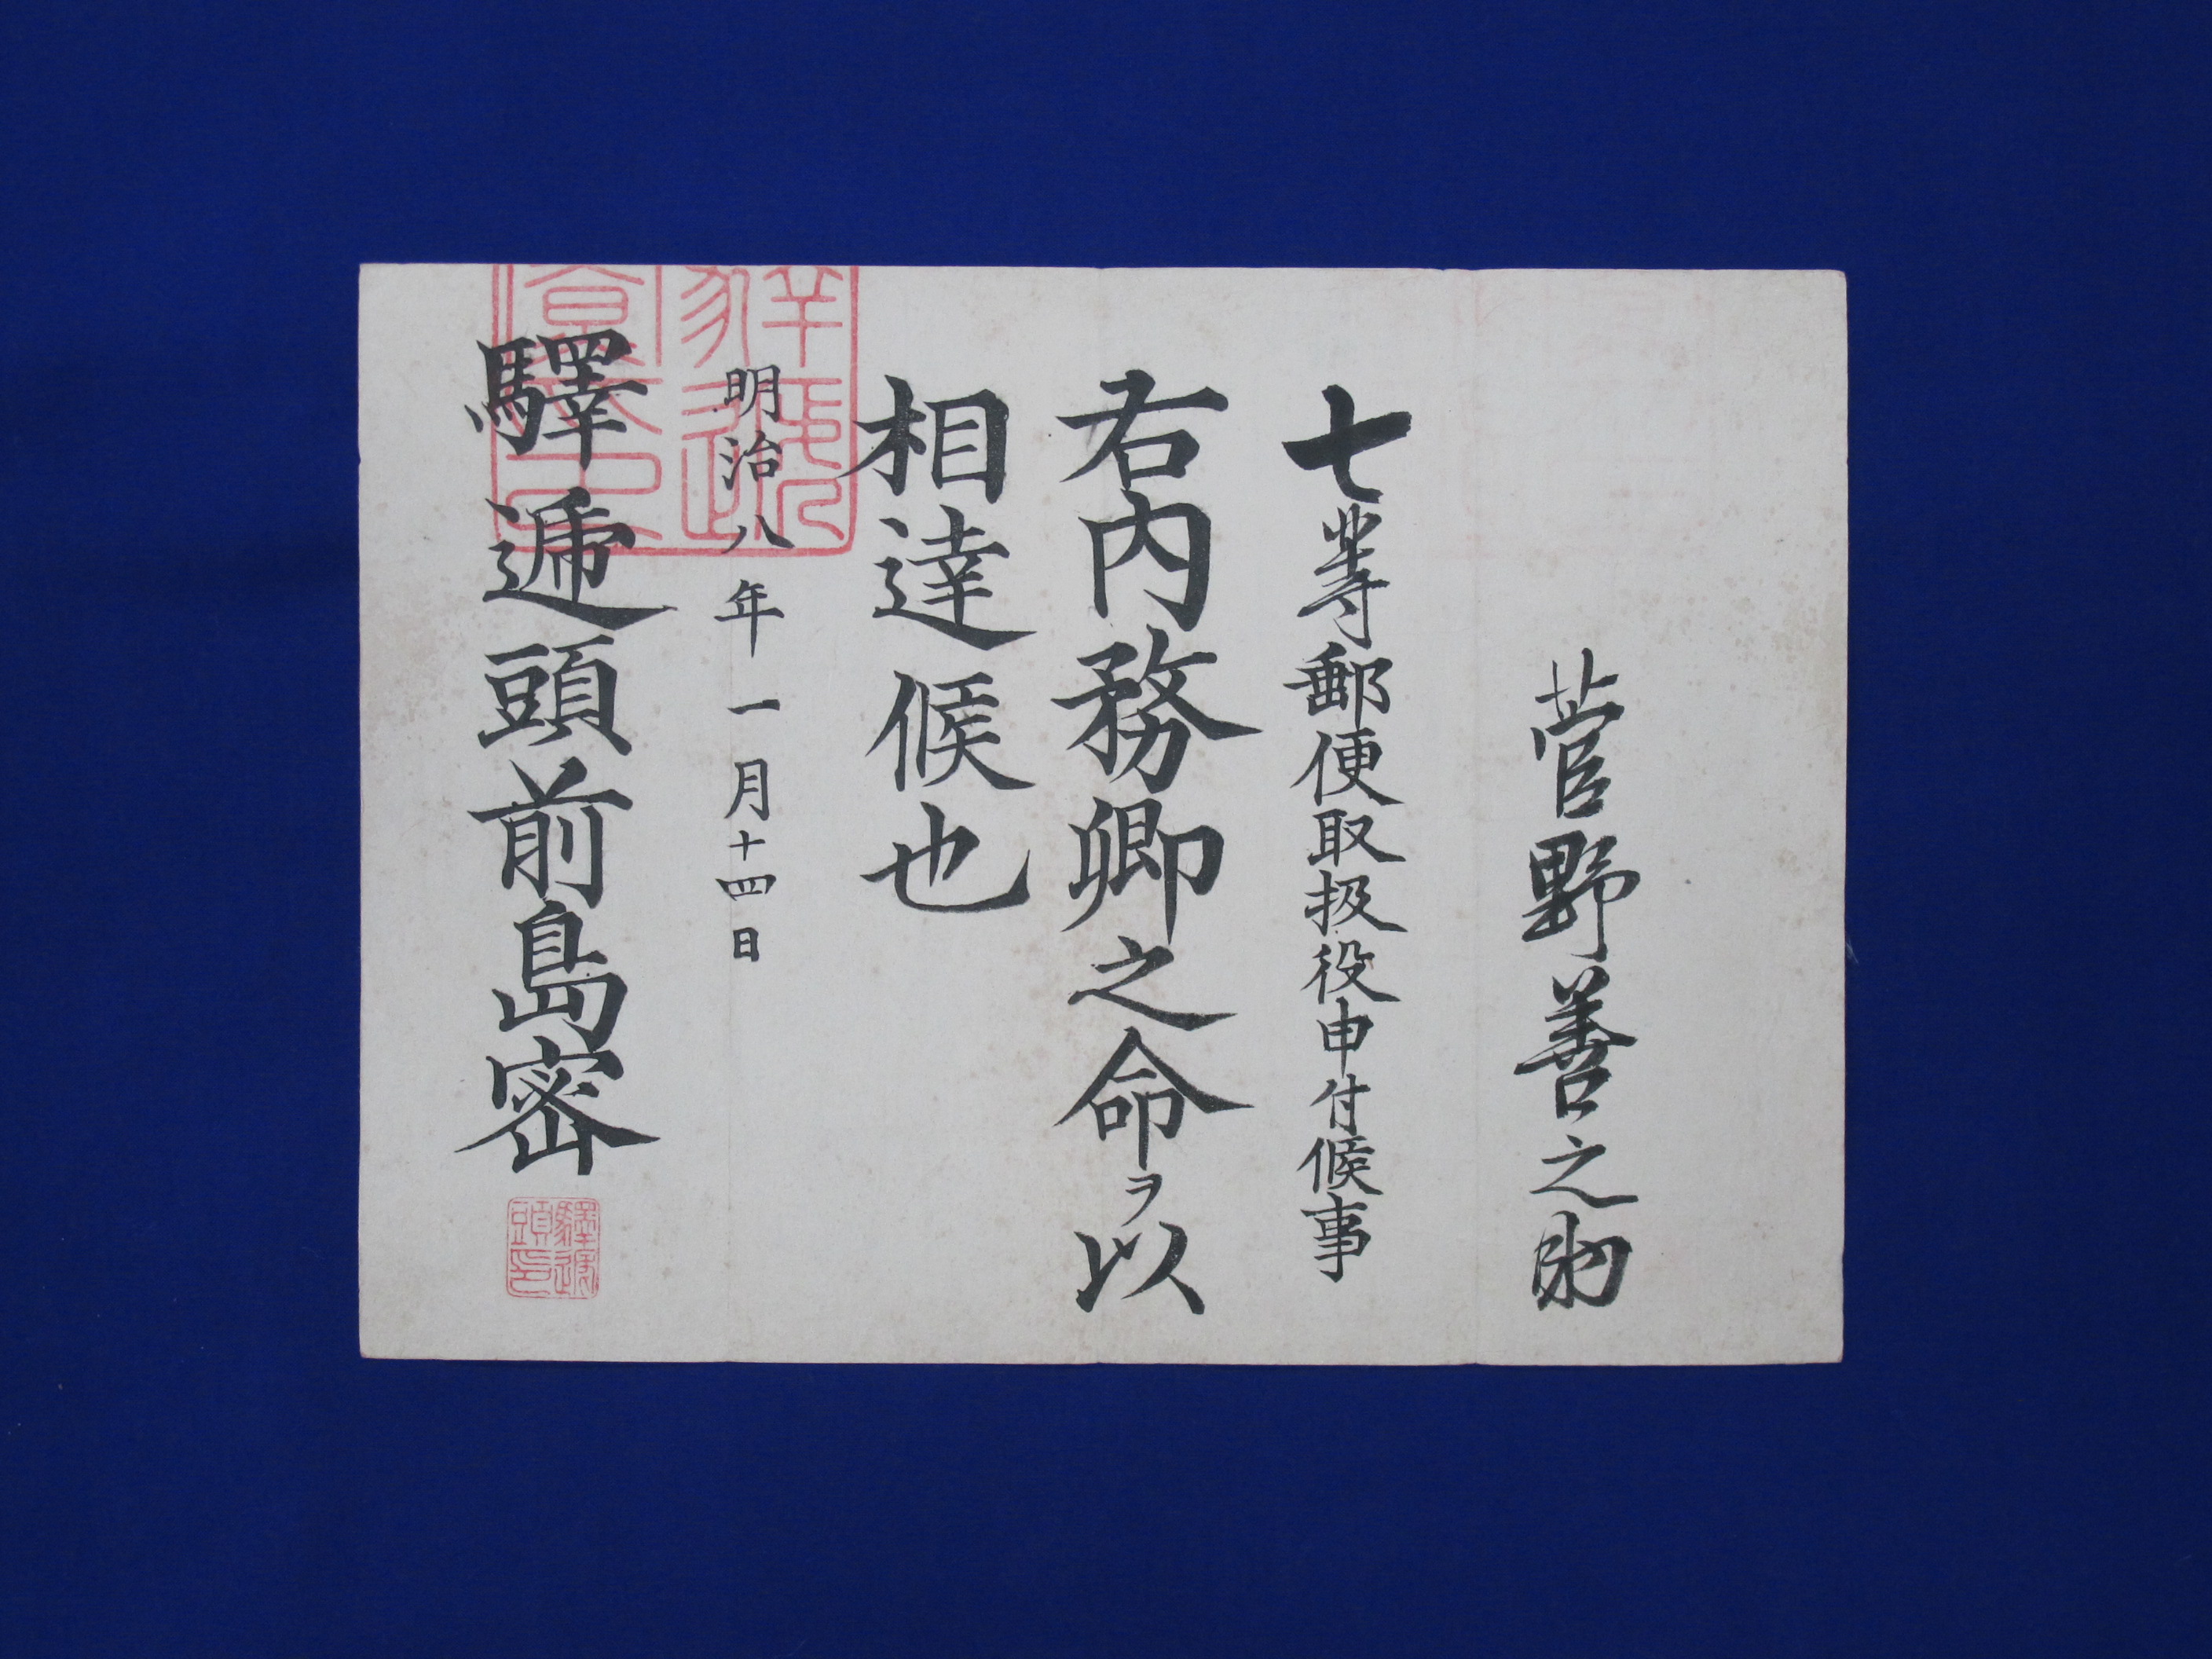 菅野善之助
七等郵便取扱役申付候事
右内務卿之命ヲ以
相達候也
明治八年一月十四日
驛遞頭前島密
驛遞頭印